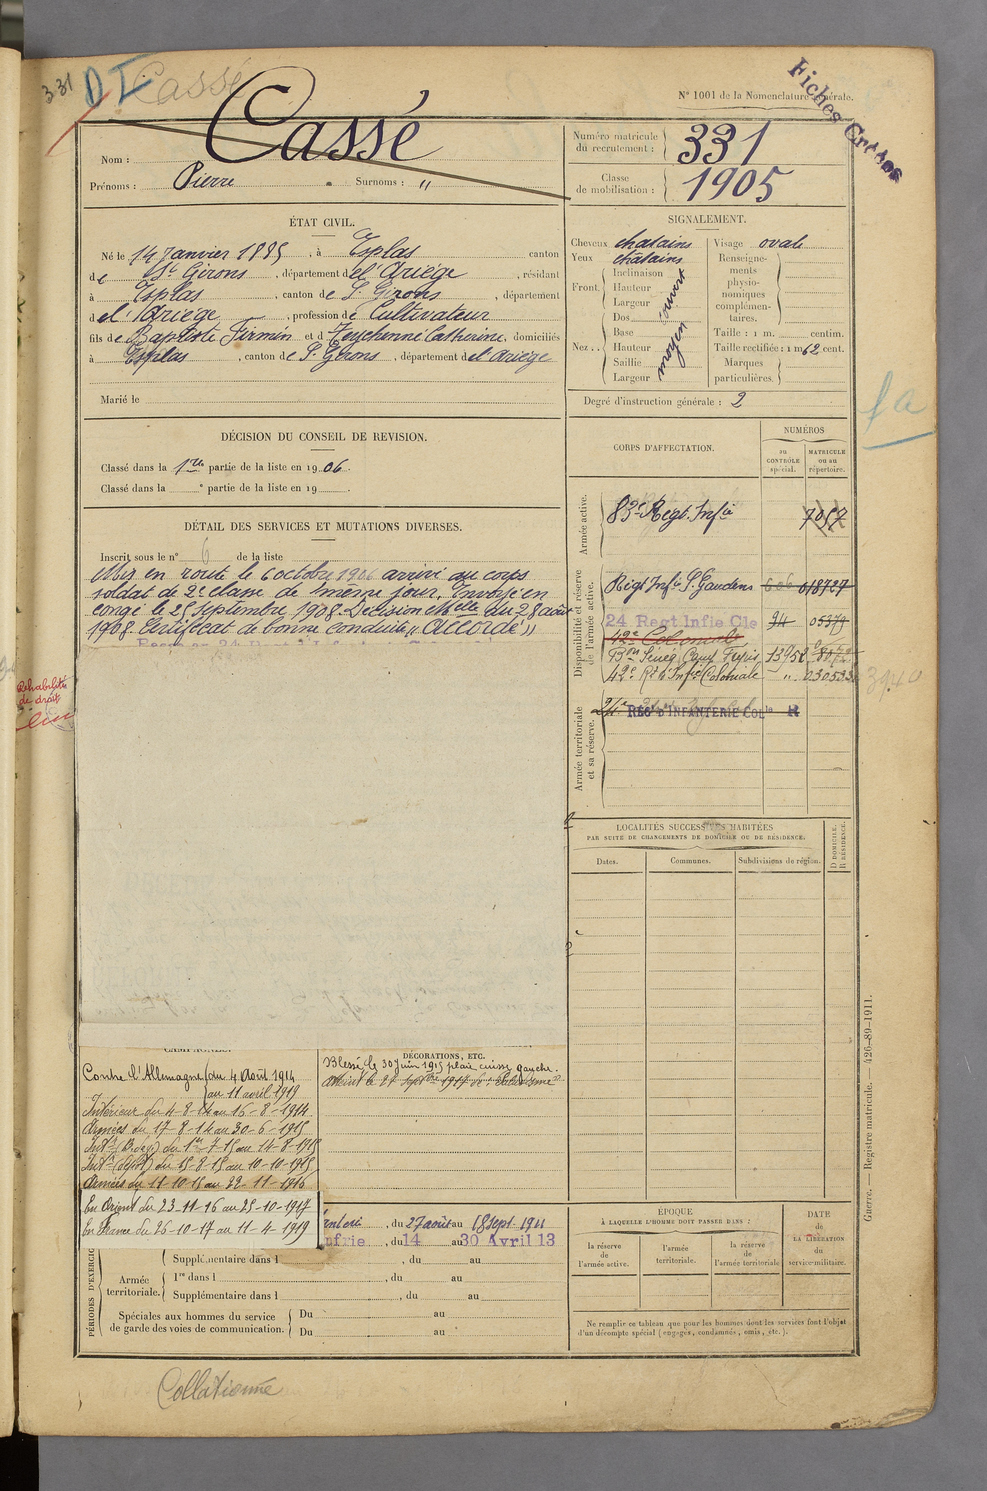 331
D I
Cassé
Fiches
N° 1001 de la Nomenclature générale.
Nom : Cassé
Prénoms : Pierre . Surnoms : "
Numéro matricule du recrutement : 331
Classe de mobilisation : 1905
ÉTAT CIVIL.
Né le 14 Janvier 1885, à Esplas canton
de St Girons, département de l'Ariège, résidant
à Esplas, canton de St Girons, département
de l'Ariège, profession de Cultivateur
fils de Baptiste Firmin et d Teychenné Catherine, domiciliés
à Esplas, canton de St Girons, département de l'Ariège
Marié le
SIGNALEMENT.
Cheveux chatains
Yeux chatains
Front. Inclinaison
Hauteur
Largeur
ouvert
Nez.. Dos
Base
Hauteur
Saillie
Largeur
moyen
Visage ovale
Renseignements physionomiques complémentaires.
Taille : 1 m. centim.
Taille rectifiée : 1 m 62 cent.
Marques particulières.
Degré d'instruction générale : 2
DÉCISION DU CONSEIL DE REVISION.
Classé dans la 1re partie de la liste en 1906.
Classé dans la e partie de la liste en 19 .
DÉTAIL DES SERVICES ET MUTATIONS DIVERSES.
Inscrit sous le n° 6 de la liste
Mis en route le 6 octobre 1906 arrivé au corps
soldat de 2e classe de même jour. Envoyé en
congé le 25 Septembre 1908. Décision Melle du 28 août
1908. Certificat de bonne conduite "Accordé"
Réhabilité
de droit
CORPS D'AFFECTATION.
NUMÉROS
au CONTRÔLE spécial.
MATRICULE ou au répertoire.
Armée active.
83e Régt. Infie 7057
Disponibilité et réserve de l'armée active.
Régt Infie St Gaudens 606 018727
24 Regt Infie Cle 94 05379
42e Colonial
Bon Sénég. Camp Fréjus 13958
42e Rt d'Infie Coloniale " 030533
3940
Armée territoriale et sa réserve.
24e REGt D'INFANTERIE COLle R
fa
LOCALITÉS SUCCESSIVES HABITÉES
PAR SUITE DE CHANGEMENTS DE DOMICILE OU DE RÉSIDENCE.
Dates.
Communes.
Subdivisions de région.
D DOMICILE.
R RÉSIDENCE.
CAMPAGNES.
Contre l'Allemagne du 4 Août 1914
au 11 avril 1919
Intérieur du 4-8-14 au 16-8-1914.
Armées du 17-8-14 au 30-6-1915
Intr (Bless) du 1er-7-15 au 14-8-1915
Intr (dépôt) du 15-8-15 au 10-10-1915
Armées du 11-10-15 au 22-11-1916
En Orient du 23-11-16 au 25-10-1917
En France du 26-10-17 au 11-4-1919
DÉCORATIONS, ETC.
Blessé le 30 Juin 1915 plaie cuisse gauche.
Atteint le 27 Septbre 1917 de "Paludisme"
anterie, du 27 août au 18 Sept. 1911
nfrie, du 14 au 30 Avril 13
PÉRIODES D'EXERCIC
Supplémentaire dans l , du au
Armée territoriale. 1re dans l , du au
Supplémentaire dans l , du au
Spéciales aux hommes du service de garde des voies de communication. Du au
Du au
ÉPOQUE
À LAQUELLE L'HOMME DOIT PASSER DANS :
la réserve de l'armée active.
l'armée territoriale.
la réserve de l'armée territoriale
DATE
de
LA LIBÉRATION
du
service militaire.
Ne remplir ce tableau que pour les hommes dont les services font l'objet
d'un décompte spécial (engagés, condamnés, omis, etc.).
Guerre. — Registre matricule. — 426-89-1911.
Collationné